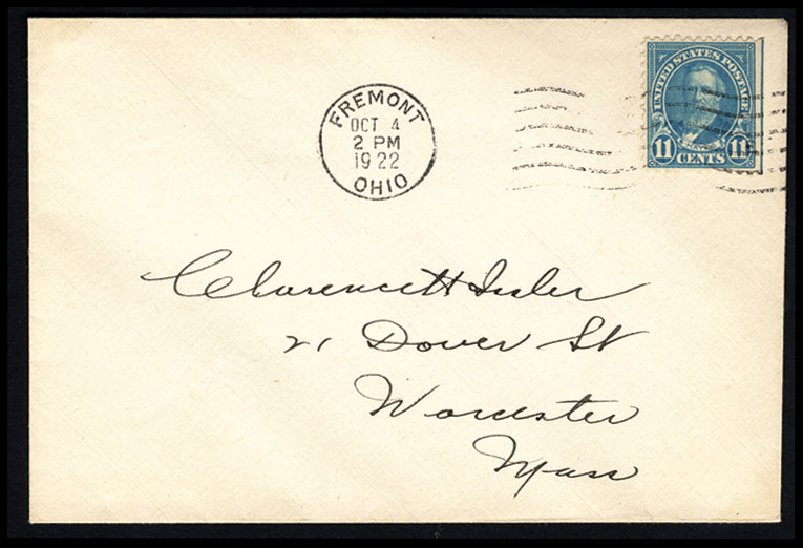 FREMONT
OCT 4
2 PM
1922
OHIO
UNITED STATES POSTAGE
HAYES
11 CENTS 11
Clarence H
21 Dover St
Worcester
Mass